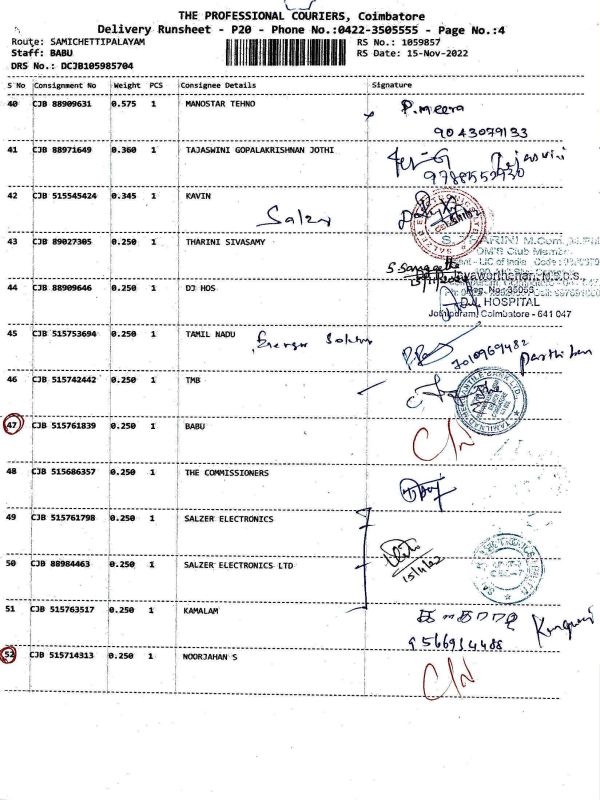 THE PROFESSIONAL COURIERS, Coimbatore
Delivery Runsheet - P20 - Phone No.:0422-3505555 - Page No.:4
Route: SAMICHETTIPALAYAM
RS No.: 1059857
Staff: BABU
RS Date: 15-Nov-2022
DRS No.: DCJB105985704
S No Consignment No Weight PCS Consignee Details Signature
40 CJB 88909631 0.575 1 MANOSTAR TEHNO P.meera
9043079133
41 CJB 88971649 0.360 1 TAJASWINI GOPALAKRISHNAN JOTHI Tejaswini
42 CJB 515545424 0.345 1 KAVIN
Salzer
43 CJB 89027305 0.250 1 THARINI SIVASAMY
S. THARINI M.Com.,M.Phil
44 CJB 88909646 0.250 1 DJ HOS
Reg. No: 35093
D.J. HOSPITAL
Coimbatore - 641 047
45 CJB 515753694 0.250 1 TAMIL NADU
7010969482
46 CJB 515742442 0.250 1 TMB
47 CJB 515761839 0.250 1 BABU
C/N
48 CJB 515686357 0.250 1 THE COMMISSIONERS
49 CJB 515761798 0.250 1 SALZER ELECTRONICS
50 CJB 88984463 0.250 1 SALZER ELECTRONICS LTD
15/11/22
51 CJB 515763517 0.250 1 KAMALAM
9566914488
52 CJB 515714313 0.250 1 NOORJAHAN S
C/N